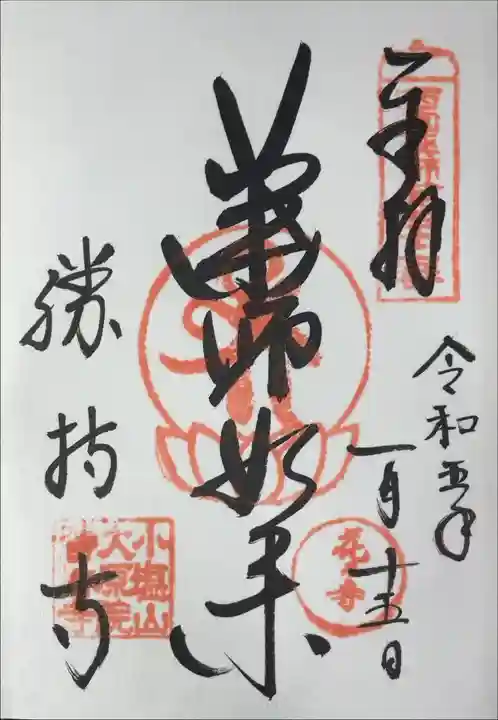 奉拝
令和五年
一月十五日
花の寺
薬師如来
勝持寺
小塩山
大原院
勝持寺